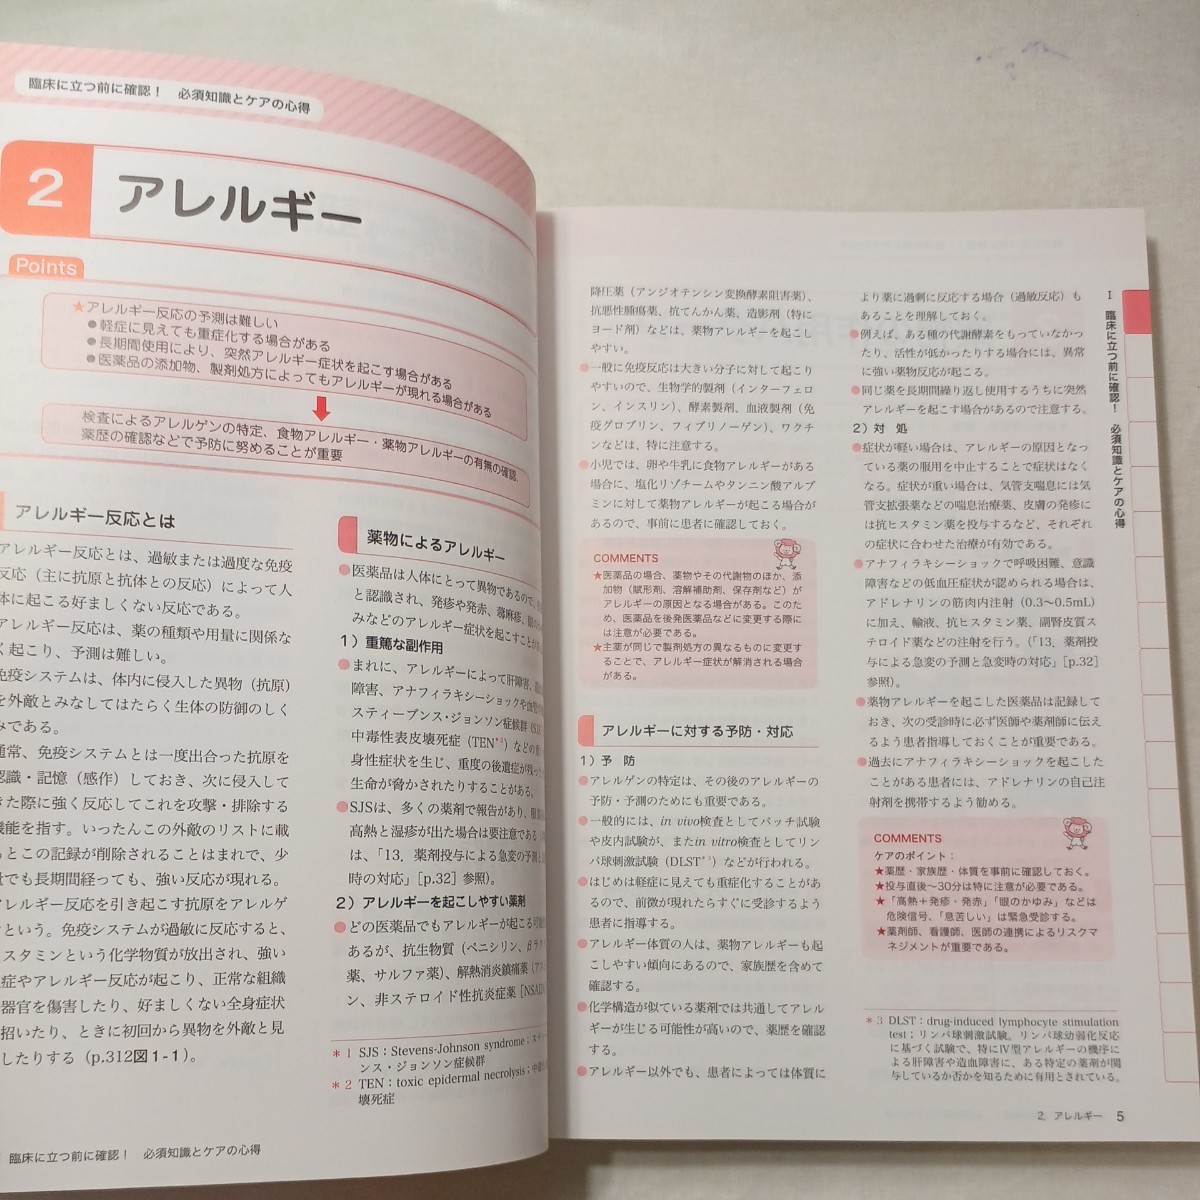 臨床に立つ前に確認！　必須知識とケアの心得
2 アレルギー
Points
★アレルギー反応の予測は難しい
●軽症に見えても重症化する場合がある
●長期間使用により、突然アレルギー症状を起こす場合がある
●医薬品の添加物、製剤処方によってもアレルギーが現れる場合がある
検査によるアレルゲンの特定、食物アレルギー・薬物アレルギーの有無の確認、
薬歴の確認などで予防に努めることが重要
アレルギー反応とは
アレルギー反応とは、過敏または過度な免疫
反応（主に抗原と抗体との反応）によって人
体に起こる好ましくない反応である。
アレルギー反応は、薬の種類や用量に関係な
く起こり、予測は難しい。
免疫システムは、体内に侵入した異物（抗原）
を外敵とみなしてはたらく生体の防御のしく
みである。
通常、免疫システムとは一度出合った抗原を
認識・記憶（感作）しておき、次に侵入して
きた際に強く反応してこれを攻撃・排除する
機能を指す。いったんこの外敵のリストに載
るとこの記録が削除されることはまれで、少
量でも長期間経っても、強い反応が現れる。
アレルギー反応を引き起こす抗原をアレルゲ
という。免疫システムが過敏に反応すると、
スタミンという化学物質が放出され、強い
症やアレルギー反応が起こり、正常な組織
器官を傷害したり、好ましくない全身症状
招いたり、ときに初回から異物を外敵と見
したりする（p.312図1-1）。
薬物によるアレルギー
●医薬品は人体にとって異物であるので、
と認識され、発疹や発赤、蕁麻疹、
みなどのアレルギー症状を起こすことが
1）重篤な副作用
●まれに、アレルギーによって肝障害、
障害、アナフィラキシーショックや
スティーブンス・ジョンソン症候群
中毒性表皮壊死症（TEN*2）などの
身性症状を生じ、重度の後遺症が残った
生命が脅かされたりすることがある。
●SJSは、多くの薬剤で報告があり、
高熱と湿疹が出た場合は要注意である
は、「13．薬剤投与による急変の予測と
時の対応」［p.32］参照）。
2）アレルギーを起こしやすい薬剤
●どの医薬品でもアレルギーが起こる可
あるが、抗生物質（ペニシリン、βラク
薬、サルファ薬）、解熱消炎鎮痛薬（アス
ン、非ステロイド性抗炎症薬［NSAID
＊1 SJS：Stevens-Johnson syndrome；
ンス・ジョンソン症候群
＊2 TEN：toxic epidermal necrolysis；中毒
壊死症
臨床に立つ前に確認！　必須知識とケアの心得
降圧薬（アンジオテンシン変換酵素阻害薬）、
抗悪性腫瘍薬、抗てんかん薬、造影剤（特に
ヨード剤）などは、薬物アレルギーを起こし
やすい。
●一般に免疫反応は大きい分子に対して起こり
やすいので、生物学的製剤（インターフェロ
ン、インスリン）、酵素製剤、血液製剤（免
疫グロブリン、フィブリノーゲン）、ワクチ
ンなどは、特に注意する。
●小児では、卵や牛乳に食物アレルギーがある
場合に、塩化リゾチームやタンニン酸アルブ
ミンに対して薬物アレルギーが起こる場合が
あるので、事前に患者に確認しておく。
COMMENTS
★医薬品の場合、薬物やその代謝物のほか、添
加物（賦形剤、溶解補助剤、保存剤など）が
アレルギーの原因となる場合がある。このた
め、医薬品を後発医薬品などに変更する際に
は注意が必要である。
★主薬が同じで製剤処方の異なるものに変更す
ることで、アレルギー症状が解消される場合
がある。
アレルギーに対する予防・対応
1）予　防
●アレルゲンの特定は、その後のアレルギーの
予防・予測のためにも重要である。
●一般的には、in vivo検査としてパッチ試験
や皮内試験が、またin vitro検査としてリン
パ球刺激試験（DLST*3）などが行われる。
●はじめは軽症に見えても重症化することがあ
るので、前徴が現れたらすぐに受診するよう
患者に指導する。
●アレルギー体質の人は、薬物アレルギーも起
こしやすい傾向にあるので、家族歴を含めて
確認する。
●化学構造が似ている薬剤では共通してアレル
ギーが生じる可能性が高いので、薬歴を確認
する。
●アレルギー以外でも、患者によっては体質に
より薬に過剰に反応する場合（過敏反応）も
あることを理解しておく。
●例えば、ある種の代謝酵素をもっていなかっ
たり、活性が低かったりする場合には、異常
に強い薬物反応が起こる。
●同じ薬を長期間繰り返し使用するうちに突然
アレルギーを起こす場合があるので注意する。
2）対　処
●症状が軽い場合は、アレルギーの原因となっ
ている薬の服用を中止することで症状はなく
なる。症状が重い場合は、気管支喘息には気
管支拡張薬などの喘息治療薬、皮膚の発疹に
は抗ヒスタミン薬を投与するなど、それぞれ
の症状に合わせた治療が有効である。
●アナフィラキシーショックで呼吸困難、意識
障害などの低血圧症状が認められる場合は、
アドレナリンの筋肉内注射（0.3〜0.5mL）
に加え、輸液、抗ヒスタミン薬、副腎皮質ス
テロイド薬などの注射を行う。（「13．薬剤投
与による急変の予測と急変時の対応」［p.32］
参照）。
●薬物アレルギーを起こした医薬品は記録して
おき、次の受診時に必ず医師や薬剤師に伝え
るよう患者指導しておくことが重要である。
●過去にアナフィラキシーショックを起こした
ことがある患者には、アドレナリンの自己注
射剤を携帯するよう勧める。
COMMENTS
ケアのポイント：
★薬歴・家族歴・体質を事前に確認しておく。
★投与直後〜30分は特に注意が必要である。
★「高熱＋発疹・発赤」「眼のかゆみ」などは
危険信号、「息苦しい」は緊急受診する。
★薬剤師、看護師、医師の連携によるリスクマ
ネジメントが重要である。
＊3 DLST：drug-induced lymphocyte stimulation
test；リンパ球刺激試験。リンパ球幼弱化反応
に基づく試験で、特にⅣ型アレルギーの機序に
よる肝障害や造血障害に、ある特定の薬剤が関
与しているか否かを知るために有用とされている。
Ⅰ 臨床に立つ前に確認！　必須知識とケアの心得
2．アレルギー 5